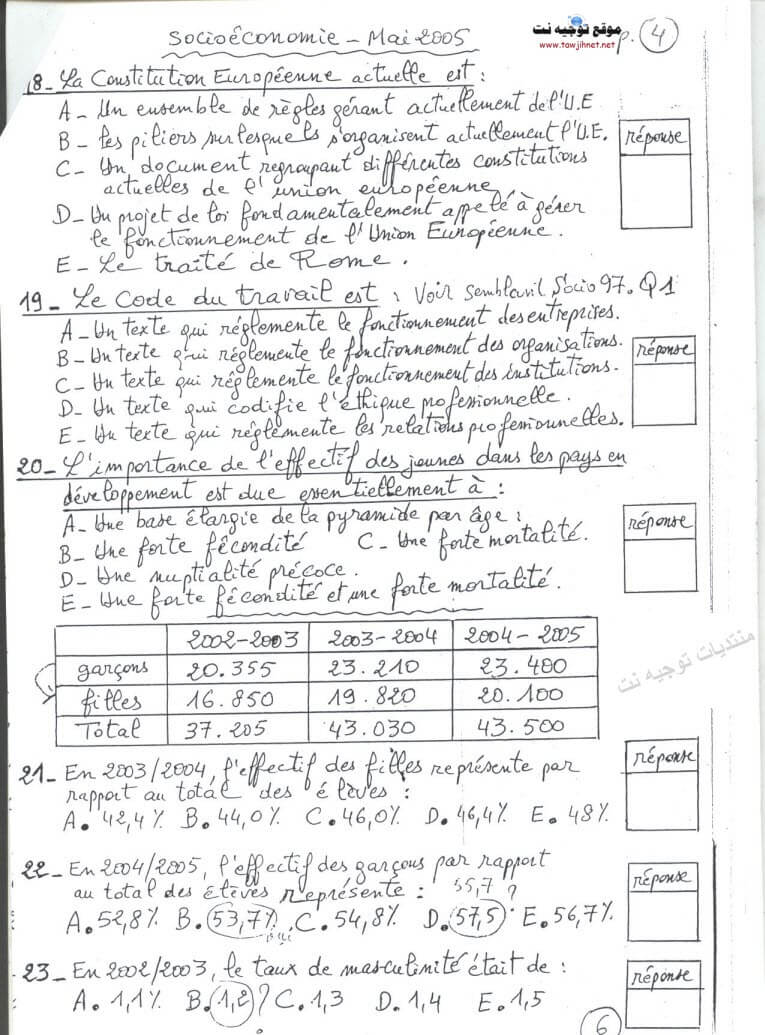 Socioéconomie - Mai 2005
موقع توجيه نت
www.tawjihnet.net
p. 4
18 - La Constitution Européenne actuelle est :
A - Un ensemble de règles gérant actuellement de l'U.E
B - Les piliers surlesquels s'organisent actuellement l'U.E.
réponse
C - Un document regroupant différentes constitutions
actuelles de l'union européenne
D - Un projet de loi fondamentalement appelé à gérer
le fonctionnement de l'Union Européenne.
E - Le traité de Rome.
19 - Le Code du travail est : Voir Socio 97. Q1
A - Un texte qui réglemente le fonctionnement des entreprises.
B - Un texte qui réglemente le fonctionnement des organisations.
réponse
C - Un texte qui réglemente le fonctionnement des institutions.
D - Un texte qui codifie l'éthique professionnelle.
E - Un texte qui réglemente les relations professionnelles.
20 - L'importance de l'effectif des jeunes dans les pays en
développement est due essentiellement à :
A - Une base élargie de la pyramide par âge :
réponse
B - Une forte fécondité C - Une forte mortalité.
D - Une nuptialité précoce.
E - Une forte fécondité et une forte mortalité.
2002-2003 2003-2004 2004-2005
garçons 20.355 23.210 23.400
filles 16.850 19.820 20.100
Total 37.205 43.030 43.500
منتديات توجيه نت
21 - En 2003/2004, l'effectif des filles représente par
réponse
rapport au total des élèves :
A. 42,4% B. 44,0% C. 46,0% D. 46,4% E. 48%
22 - En 2004/2005, l'effectif des garçons par rapport
réponse
au total des élèves représente : 55,7 ?
A. 52,8% B. 53,7% C. 54,8% D. 57,5 E. 56,7%
23 - En 2002/2003, le taux de masculinité était de :
réponse
A. 1,1% B. 1,2 ? C. 1,3 D. 1,4 E. 1,5
6